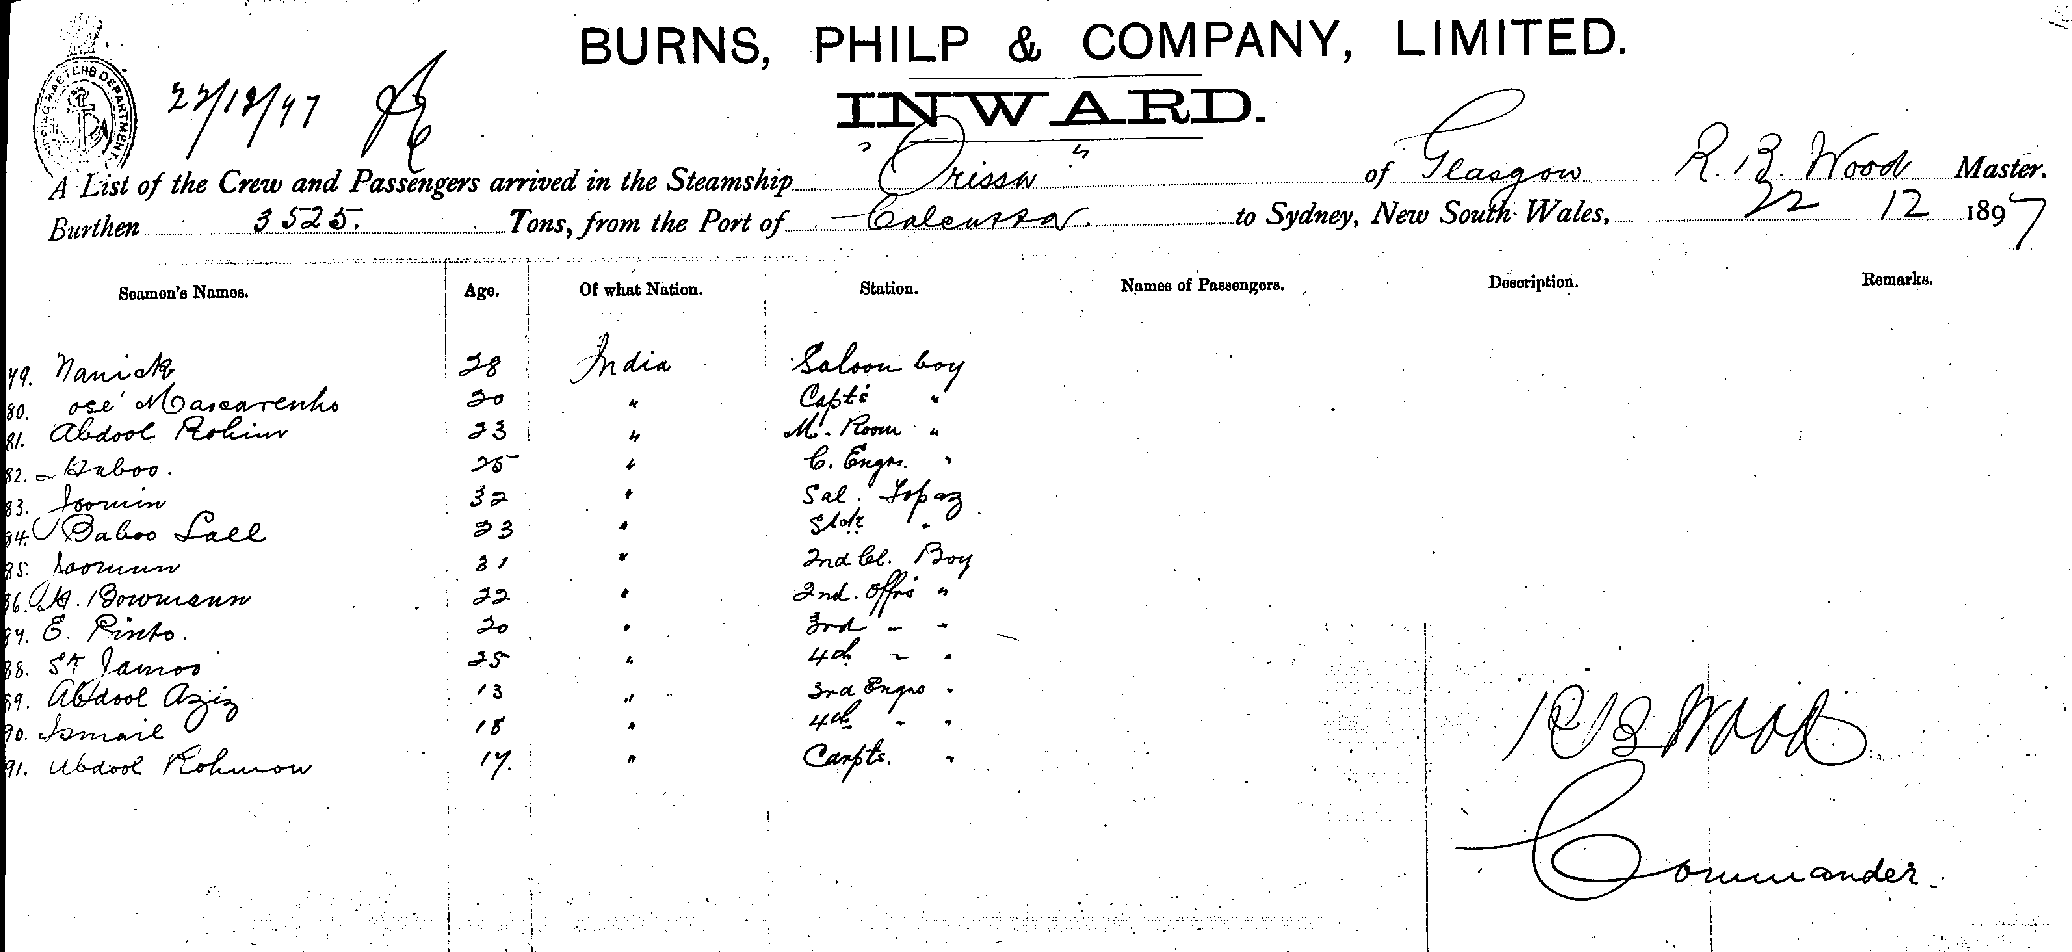 BURNS, PHILP & COMPANY, LIMITED.
INWARD.
SHIPPING MASTERS DEPARTMENT
22/12/97
A List of the Crew and Passengers arrived in the Steamship "Orissa" of Glasgow R. B. Wood Master.
Burthen 3525. Tons, from the Port of Calcutta to Sydney, New South Wales, 22 12 1897
Seamen's Names. Age. Of what Nation. Station. Names of Passengers. Description. Remarks.
79. Nanick 28 India Saloon boy
80. osé Mascarenhs 20 " Capts "
81. Abdool Rohim 23 " M. Room "
82. Baboo. 25 " C. Engrs. "
83. Joomun 32 " Sal. Topaz
84. Baboo Lall 33 " "
85. Joomun 31 " 2nd Cl. Boy
86. Bowmann 22 " 2nd. Offrs "
87. E. Pinto. 20 " 3rd " "
88. St James 25 " 4th " "
89. Abdool Aziz 13 " 3rd Engrs "
90. Ismail 18 " 4th " "
91. Abdool Rohmon 17. " Carpts. "
R B Wood
Commander.